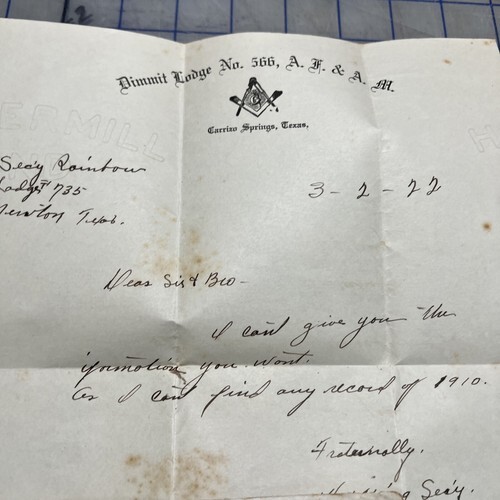 Dimmit Lodge No. 566, A. F. & A. M.
Carrizo Springs, Texas,
Sec'y Rainbow
Lodge # 735
Newton Texas.
3-2-22
Dear Sir & Bro-
I can't give you the
iformation you want.
as I can't find any record of 1910.
Fraternally,
Sec'y.